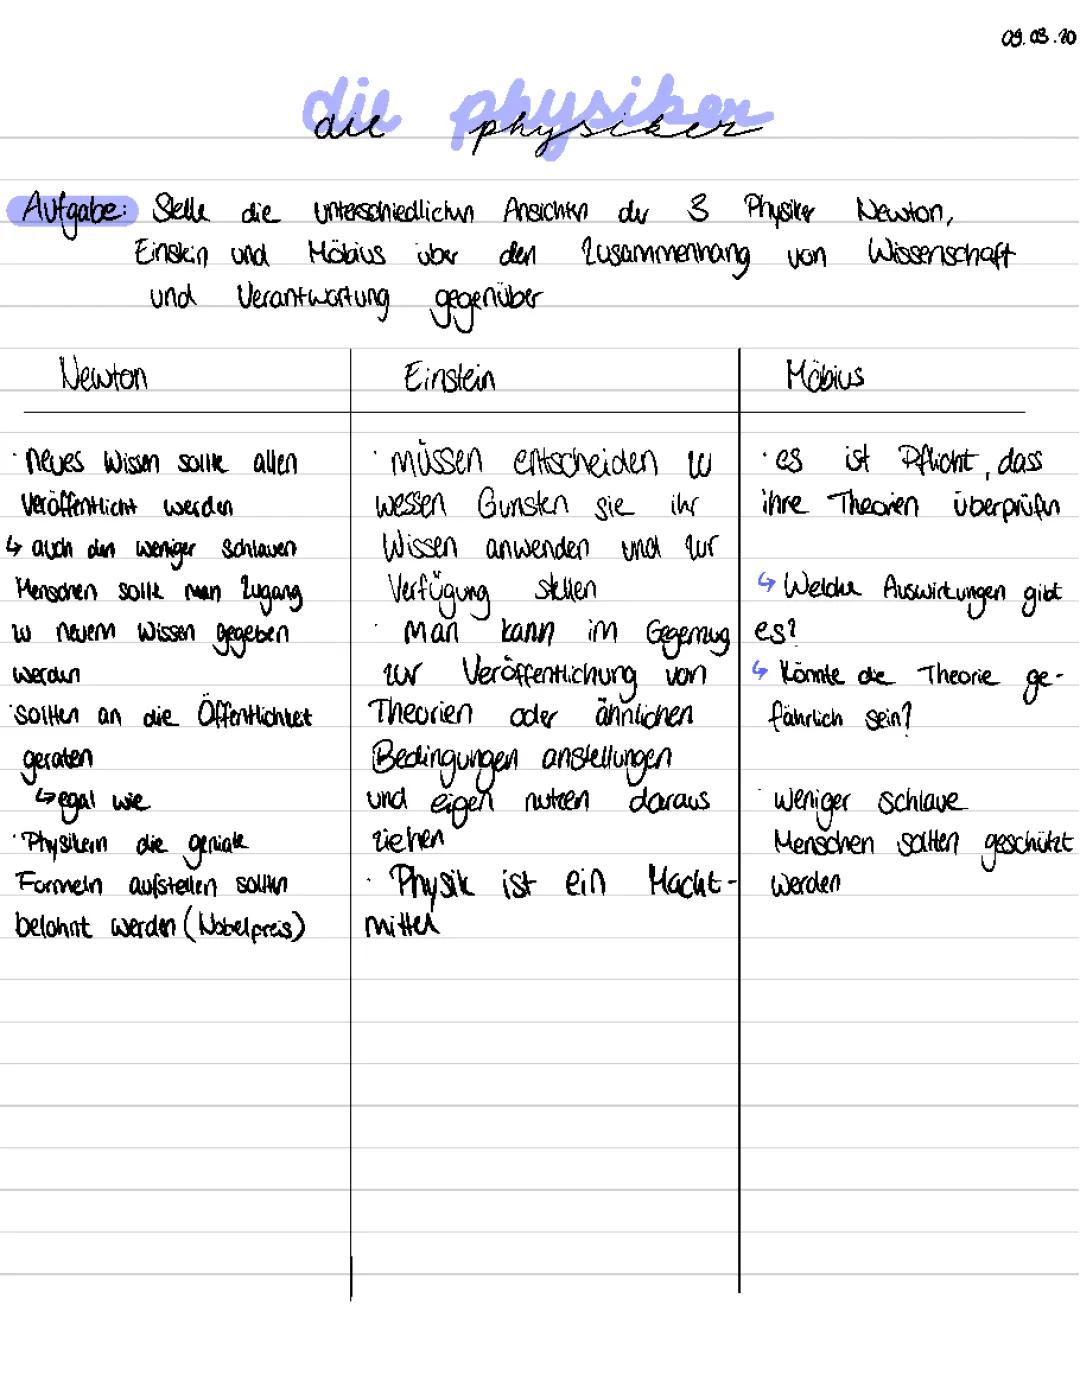 09.03.20
die physiker
Aufgabe: Stelle die unterschiedlichen Ansichten der 3 Physiker Newton,
Einstein und Möbius über den Zusammenhang von Wissenschaft
und Verantwortung gegenüber
Newton
· neues Wissen sollte allen
veröffentlicht werden
↳ auch den weniger schlauen
Menschen sollte man Zugang
zu neuem Wissen gegeben
werden
· sollten an die Öffentlichkeit
geraten
↳ egal wie
· Physikern die geniale
Formeln aufstellen sollten
belohnt werden (Nobelpreis)
Einstein
· müssen entscheiden zu
wessen Gunsten sie ihr
Wissen anwenden und zur
Verfügung stellen
· man kann im Gegenzug
zur Veröffentlichung von
Theorien oder ähnlichen
Bedingungen anstellungen
und eigen nutzen daraus
ziehen
· Physik ist ein Macht-
mittel
Möbius
· es ist Pflicht, dass
ihre Theorien überprüfen
↳ Welche Auswirkungen gibt
es?
↳ Könnte die Theorie ge-
fährlich sein?
· weniger schlaue
Menschen sollten geschützt
werden